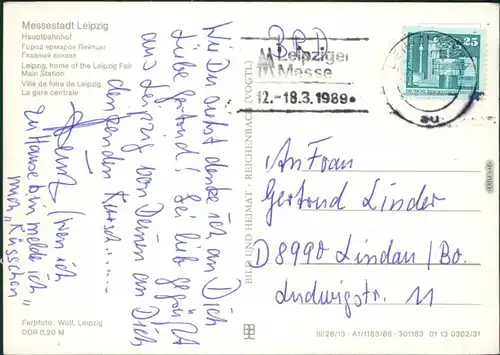 Messestadt Leipzig
Hauptbahnhof
Город ярмарок Лейпциг
Главный вокзал
Leipzig, home of the Leipzig Fair
Main Station
Ville de foire de Leipzig
La gare centrale
Wie Du siehst denke ich an Dich
Liebe Gertrud! Sei lieb gegrüßt
aus Leipzig von Deinem an Dich
denkenden
(wenn ich
zu Hause bin melde ich
mich „Küsschen"
Farbfoto: Woll, Leipzig
DDR 0,20 M
BILD UND HEIMAT · REICHENBACH (VOGTL)
BRD
Leipziger
Messe
12.-18.3.1989
25
An Frau
Gertrud Linder
D 8990 Lindau/Bo.
Ludwigstr. 11
III/26/13 · A1/1183/86 · 301183 01 13 0302/31